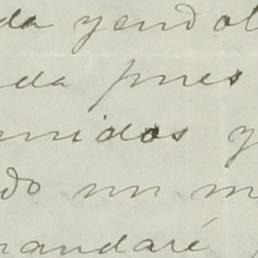 da yendo
da pues
unidos y
do un m
mandaré